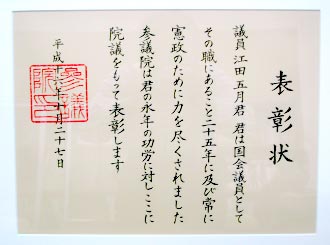 表彰状
議員江田五月君 君は国会議員として
その職にあること二十五年に及び常に
憲政のために力を尽くされました
参議院は君の永年の功労に対しここに
院議をもって表彰します
平成十六年十月二十七日
参議院印